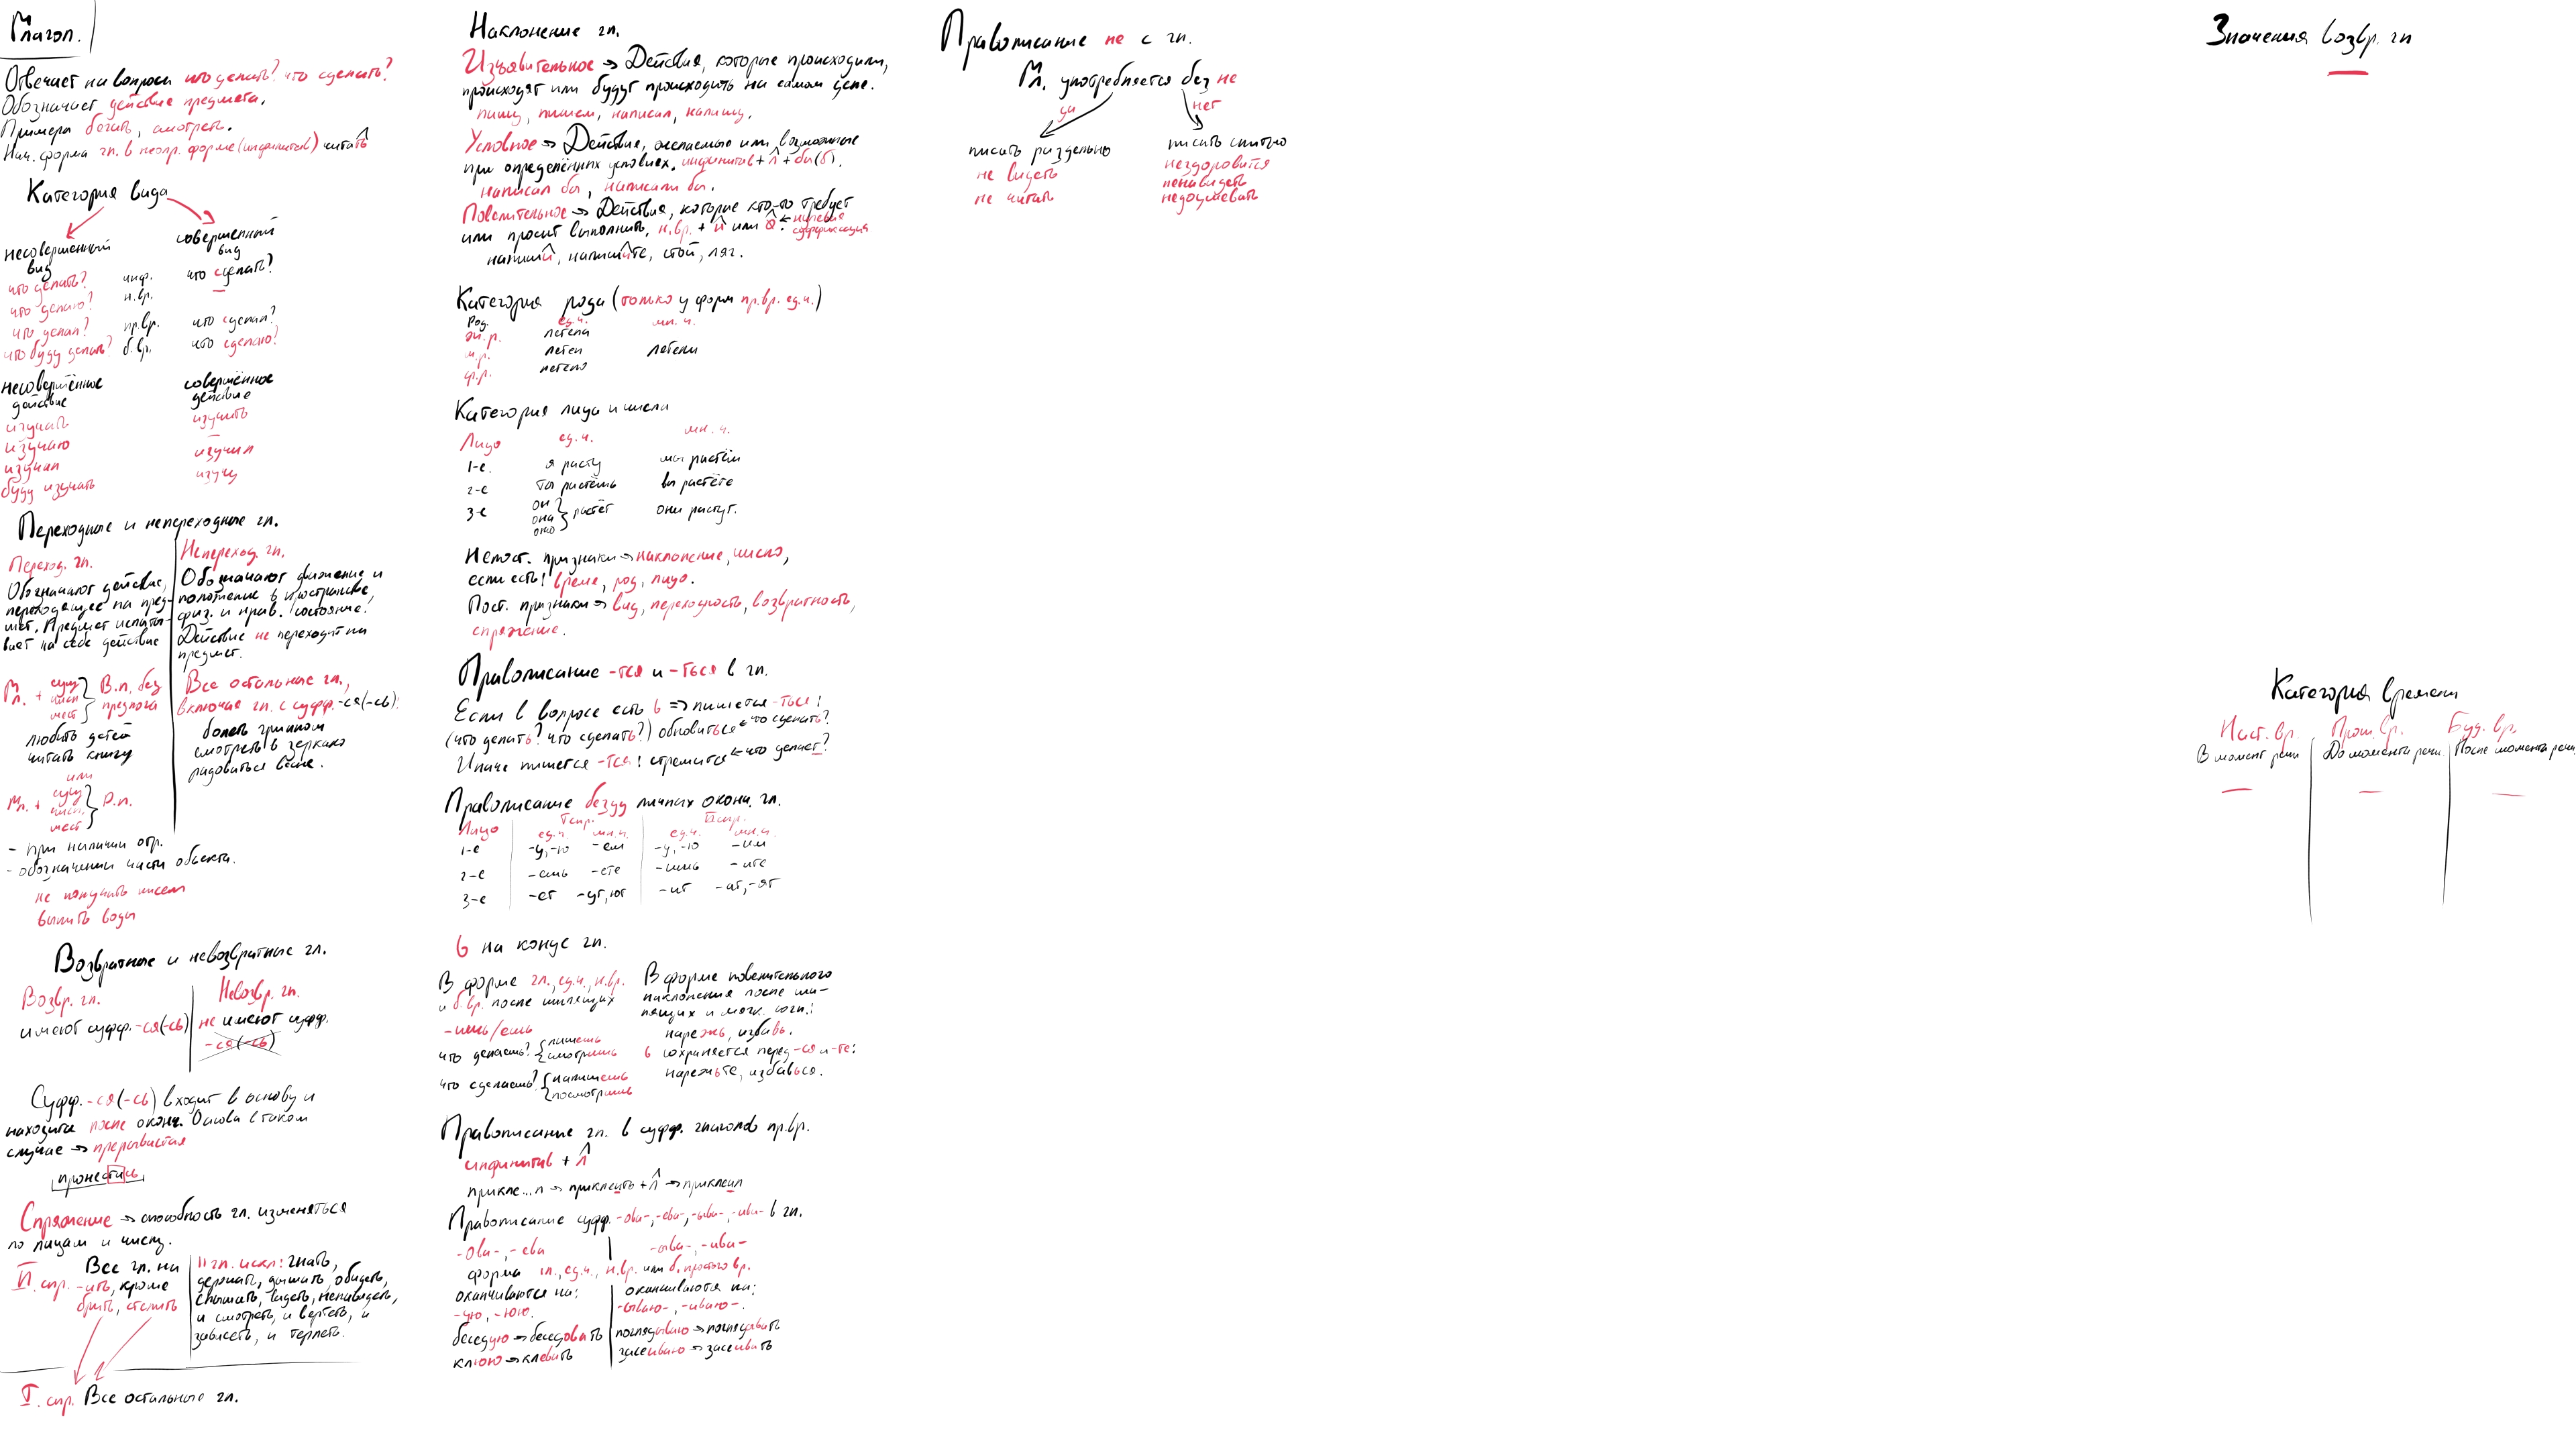 Глагол.
Отвечает на вопросы что делать? что сделать?
Обозначает действие предмета.
Примеры бегать, смотреть.
Нач. форма гл. в неопр. форме (инфинитив) читать
Категория вида
несовершенный вид
совершенный вид
что делать? инф. что сделать?
что делаю? н.вр.
что делал? пр.вр. что сделал?
что буду делать? б.вр. что сделаю?
несовершённое действие
совершённое действие
изучать изучить
изучаю
изучал изучил
буду изучать изучу
Переходные и непереходные гл.
Переход. гл.
Обозначают действие,
переходящее на пред-
мет. Предмет испыты-
вает на себе действие
Гл. + сущ числ мест } В.п. без предлога
любить детей
читать книгу
или
Гл. + сущ числ. мест } Р.п.
- при наличии отр.
- обозначении части объекта.
не получить писем
выпить воды
Непереход. гл.
Обозначают движение и
положение в пространстве,
физ. и нрав. состояние.
Действие не переходит на
предмет.
Все остальные гл.,
включая гл. с суфф. -ся(-сь):
болеть гриппом
смотреть в зеркало
радоваться весне.
Возвратные и невозвратные гл.
Возвр. гл.
имеют суфф. -ся(-сь)
Невозвр. гл.
не имеют суфф.
-ся(-сь)
Суфф. -ся(-сь) входит в основу и
находится после оконч. Основа в таком
случае → прерывистая
пронестись
Спряжение → способность гл. изменяться
по лицам и числу.
II спр. Все гл. на
-ить, кроме
брить, стелить
11 гл. искл: гнать,
держать, дышать, обидеть,
слышать, видеть, ненавидеть,
и смотреть, и вертеть, и
зависеть, и терпеть.
I. спр. Все остальные гл.
Наклонение гл.
Изъявительное → Действия, которые происходили,
происходят или будут происходить на самом деле.
пишу, пишем, написал, напишу.
Условное → Действия, желаемые или возможные
при определённых условиях. инфинитив + л + бы(б).
написал бы, написали бы.
Повелительное → Действия, которые кто-то требует
или просит выполнить. н.вр. + и или Ø. ← нулевая суффиксация
напиши, напишите, стой, ляг.
Категория рода (только у форм пр.вр. ед.ч.)
Род. ед.ч. мн.ч.
ж.р. летела
м.р. летел летели
ср.р. летело
Категория лица и числа
Лицо ед.ч. мн.ч.
1-е. я расту мы растём
2-е ты растёшь вы растёте
3-е он она оно } растёт они растут.
Непост. признаки → наклонение, число,
если есть: время, род, лицо.
Пост. признаки → вид, переходность, возвратность,
спряжение.
Правописание -тся и -ться в гл.
Если в вопросе есть ь => пишется -ться:
(что делать? что сделать?) обновиться ← что сделать?
Иначе пишется -тся: стремится ← что делает?
Правописание безуд личных оконч. гл.
Лицо I спр. II спр.
ед.ч. мн.ч. ед.ч. мн.ч.
1-е -у,-ю -ем -у,-ю -им
2-е -ешь -ете -ишь -ите
3-е -ет -ут,ют -ит -ат,-ят
ь на конце гл.
В форме гл., ед.ч., н.вр.
и б.вр. после шипящих
-ишь/ешь
что делаешь? { пишешь смотришь
что сделаешь? { напишешь посмотришь
В форме повелительного
наклонения после ши-
пящих и мягк. согл.:
нарежь, избавь.
ь сохраняется перед -ся и -те:
нарежьте, избавься.
Правописание гл. в суфф. глаголов пр.вр.
инфинитив + л
прикле...л → приклеить + л → приклеил
Правописание суфф. -ова-, -ева-, -ыва-, -ива- в гл.
-ова-, -ева -ыва-, -ива-
форма 1л., ед.ч., н.вр. или б. простого вр.
оканчиваются на:
-ую, -юю.
беседую → беседовать
клюю → клевать
оканчиваются на:
-ываю-, -иваю-.
поглядываю → поглядывать
засеиваю → засеивать
Правописание не с гл.
Гл. употребляется без не
да нет
писать раздельно
не видеть
не читать
писать слитно
нездоровится
ненавидеть
недоумевать
Значения возвр. гл
Категория времени
Наст. вр. Прош. вр. Буд. вр.
В момент речи До момента речи После момента речи